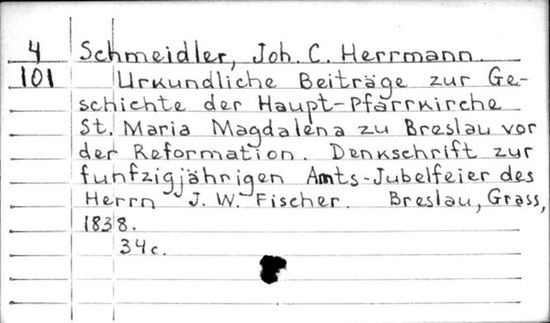 4 Schmeidler, Joh. C. Herrmann.
101 Urkundliche Beiträge zur Ge-
schichte der Haupt-Pfarrkirche
St. Maria Magdalena zu Breslau vor
der Reformation. Denkschrift zur
funfzigjährigen Amts-Jubelfeier des
Herrn J. W. Fischer. Breslau, Grass,
1838.
34c.